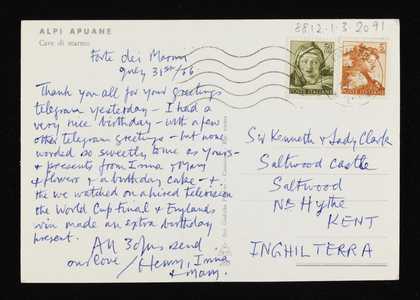 8812.1.3.2091
ALPI APUANE
Cave di marmo
Forte dei Marmi
July 31st/66
Thank you all for your greetings
telegram yesterday - I had a
very nice birthday - with a few
other telegram greetings - but none
worded so sweetly to me as yours -
+ presents from Irina + Mary
+ flowers + a birthday cake - +
the we watched on a hired television
the World Cup Final & Englands
win made an extra birthday
present.
All 3 of us send
our love / Henry, Irina
+ Mary.
POSTE ITALIANE
POSTE ITALIANE
Sir Kenneth + Lady Clark
Saltwood Castle
Saltwood
Nr Hythe
KENT
INGHILTERRA